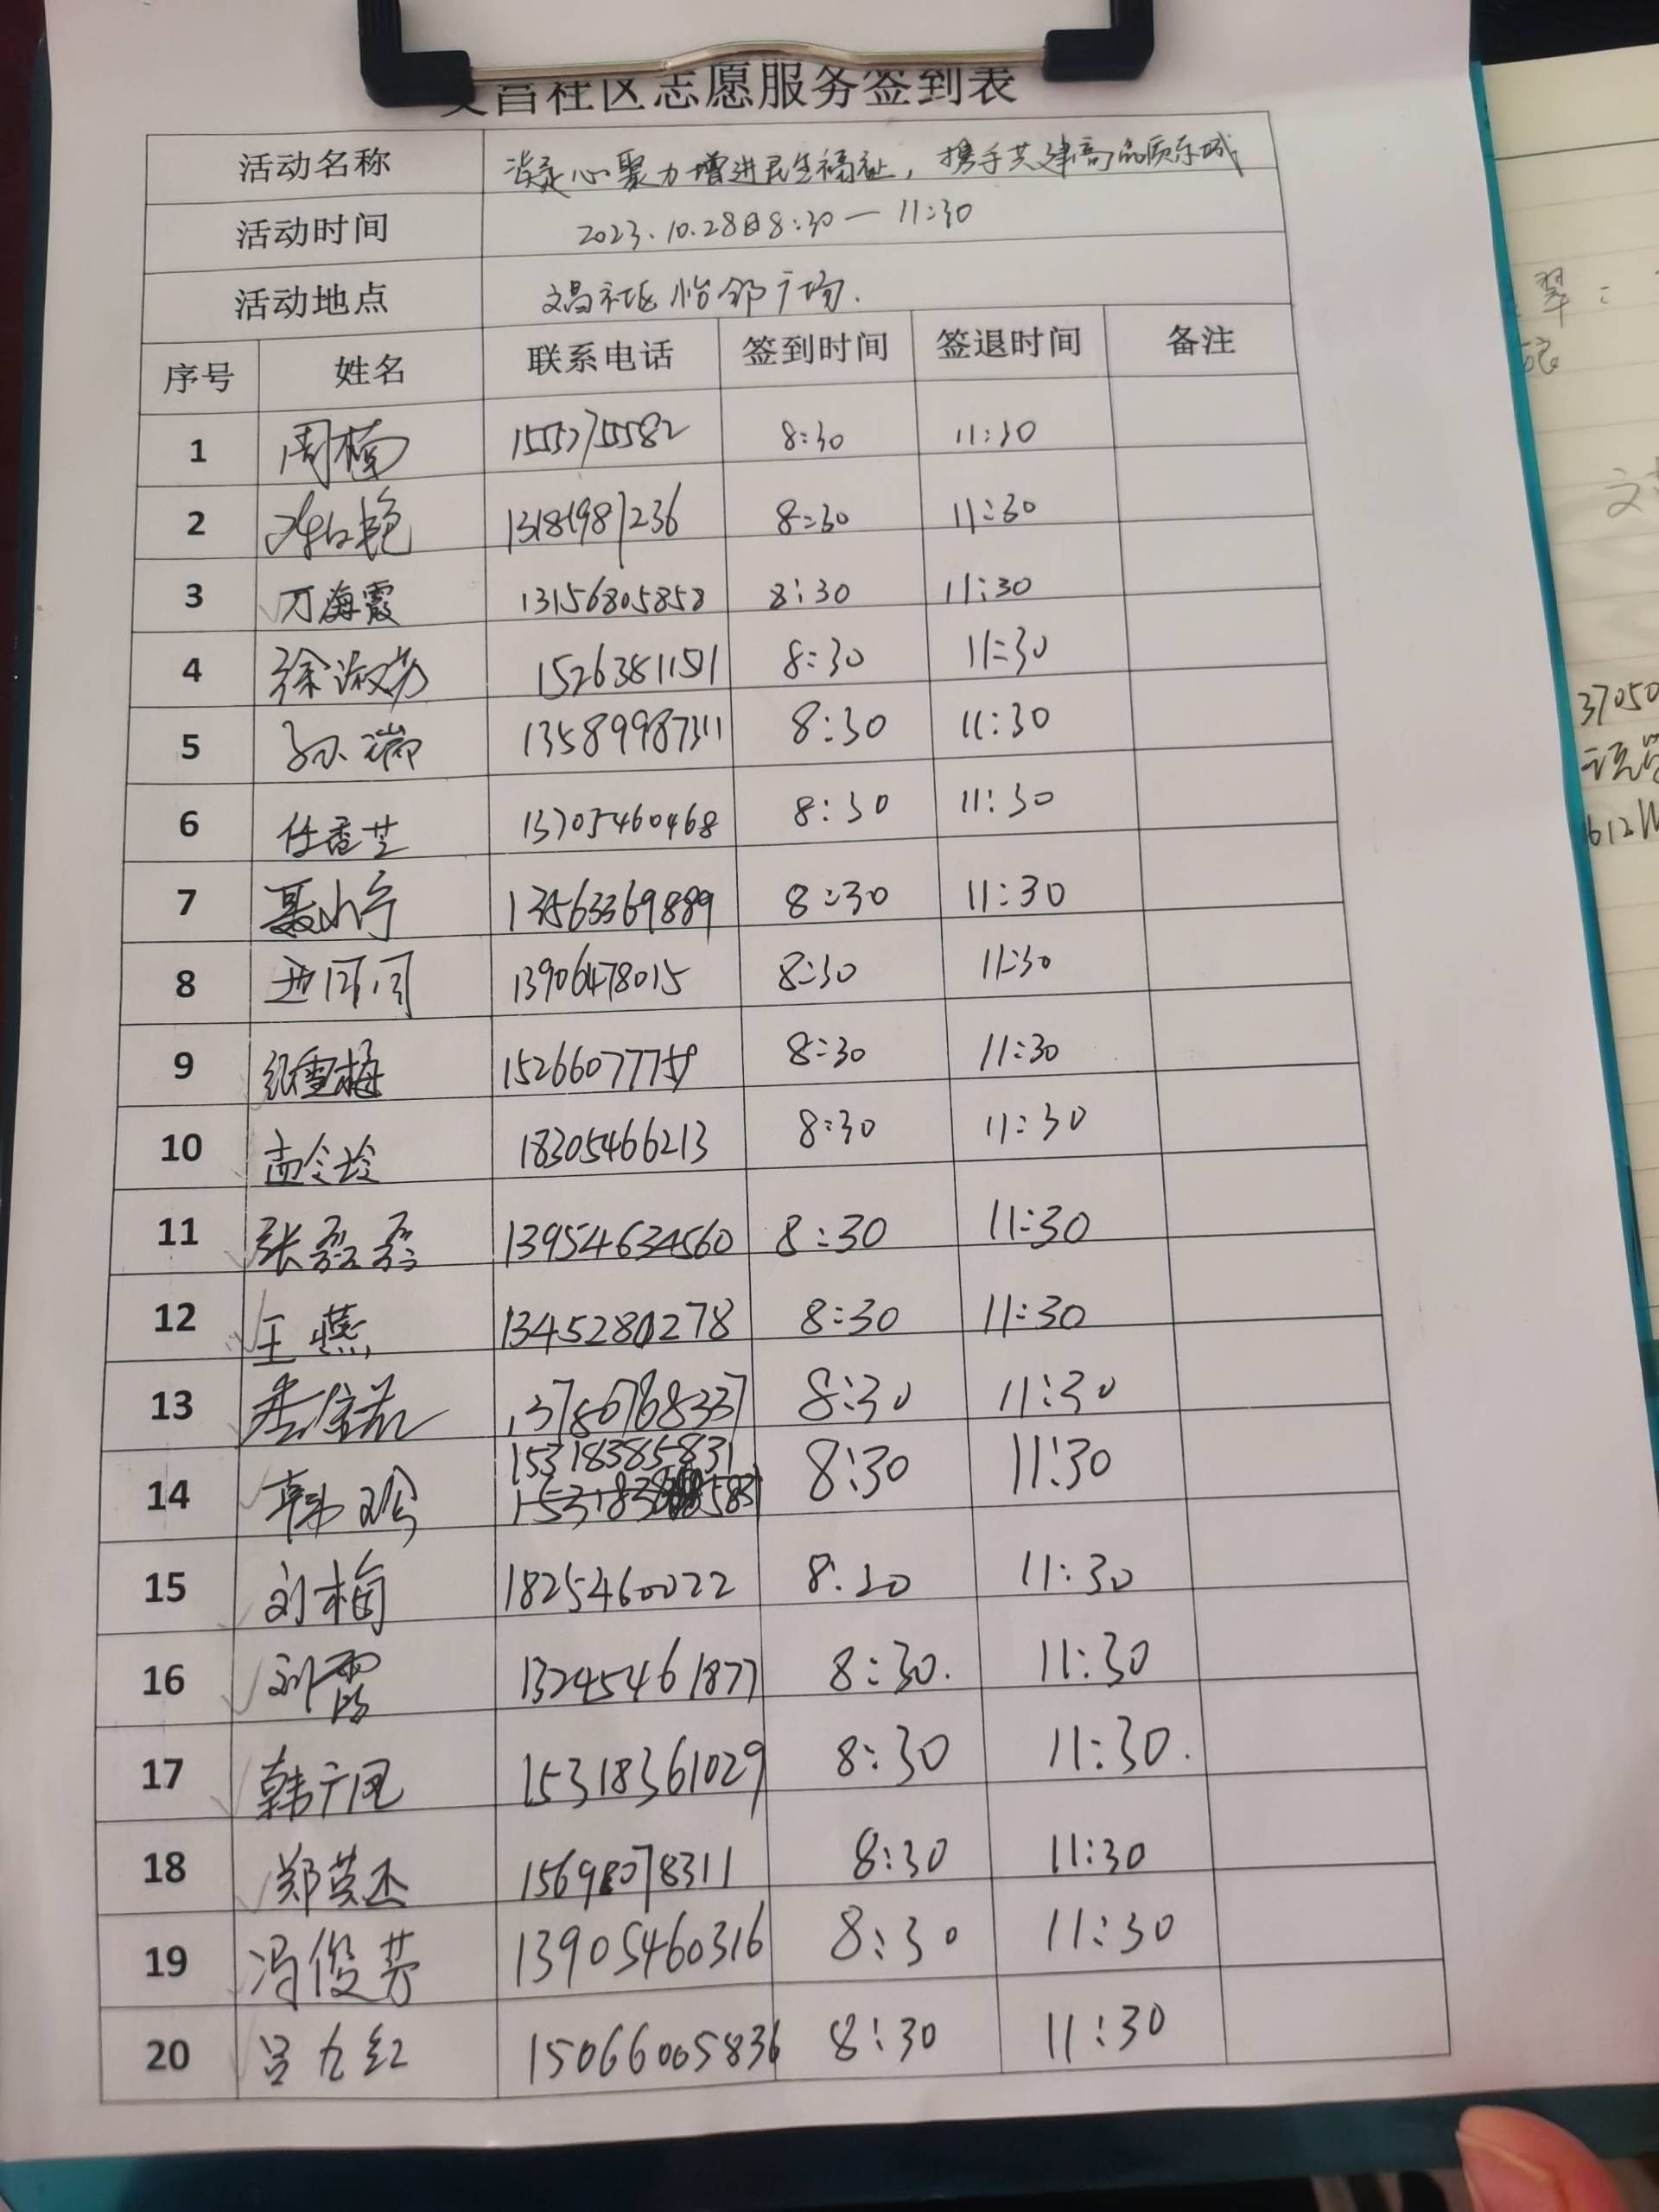 文昌社区志愿服务签到表
活动名称 凝心聚力增进民生福祉，携手共建高品质东城
活动时间 2023.10.28日8:30—11:30
活动地点 文昌社区怡邻广场.
序号 姓名 联系电话 签到时间 签退时间 备注
1 周楠 8:30 11:30
2 13181987236 8:30 11:30
3 万海霞 13156805858 8:30 11:30
4 徐淑芳 8:30 11:30
5 孙瑞 13589987311 8:30 11:30
6 任香芝 13705460468 8:30 11:30
7 聂小宁 13563369889 8:30 11:30
8 13906478015 8:30 11:30
9 纪雪梅 15266077759 8:30 11:30
10 孟令玲 18305466213 8:30 11:30
11 张磊磊 13954634560 8:30 11:30
12 王燕 13452801278 8:30 11:30
13 8:30 11:30
14 韩 15318385831 8:30 11:30
15 刘梅 1825460022 8:30 11:30
16 刘霞 13245461877 8:30. 11:30
17 韩广凤 15318361029 8:30 11:30.
18 郑英杰 15698078311 8:30 11:30
19 冯俊芳 13905460316 8:30 11:30
20 吕九红 15066005836 8:30 11:30
翠：
文
37050
612